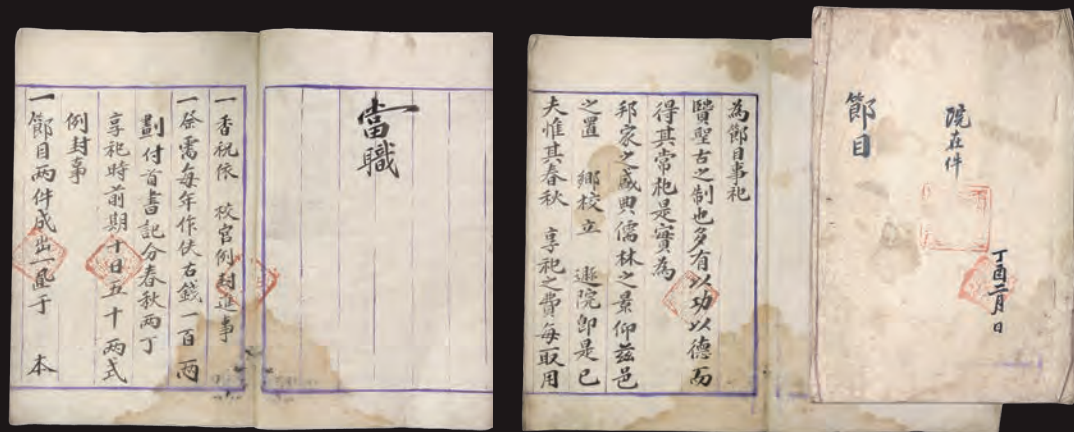 丁酉二月 日
院在件
節目
為節目事祀
賢聖古之制也多有以功以德而
得其常祀是實為
邦家之盛典儒林之景仰茲邑
之置 鄉校立 遯院卽是已
夫惟其春秋 享祀之費每取用
當職
一香祝依 校官例封進事
一祭需每年作伕右錢一百兩
劃付首書記分春秋兩丁
享祀時前期十日五十兩式
例封事
一節目兩件成出一置于 本